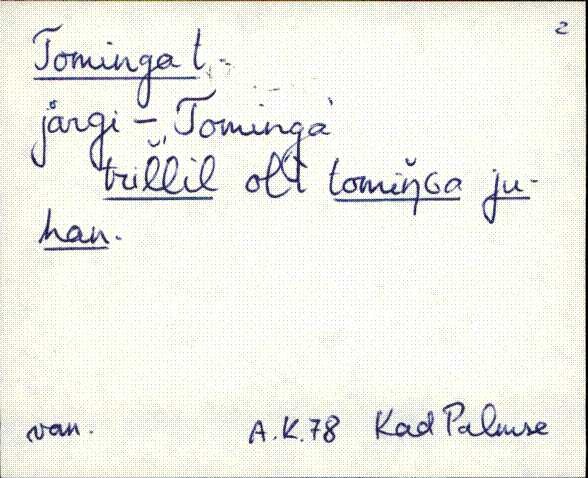 2
Tominga t.
järgi – Tominga
trillil oli tomiŋGa ju-
han.
van. A.K.78 Kad Palmse